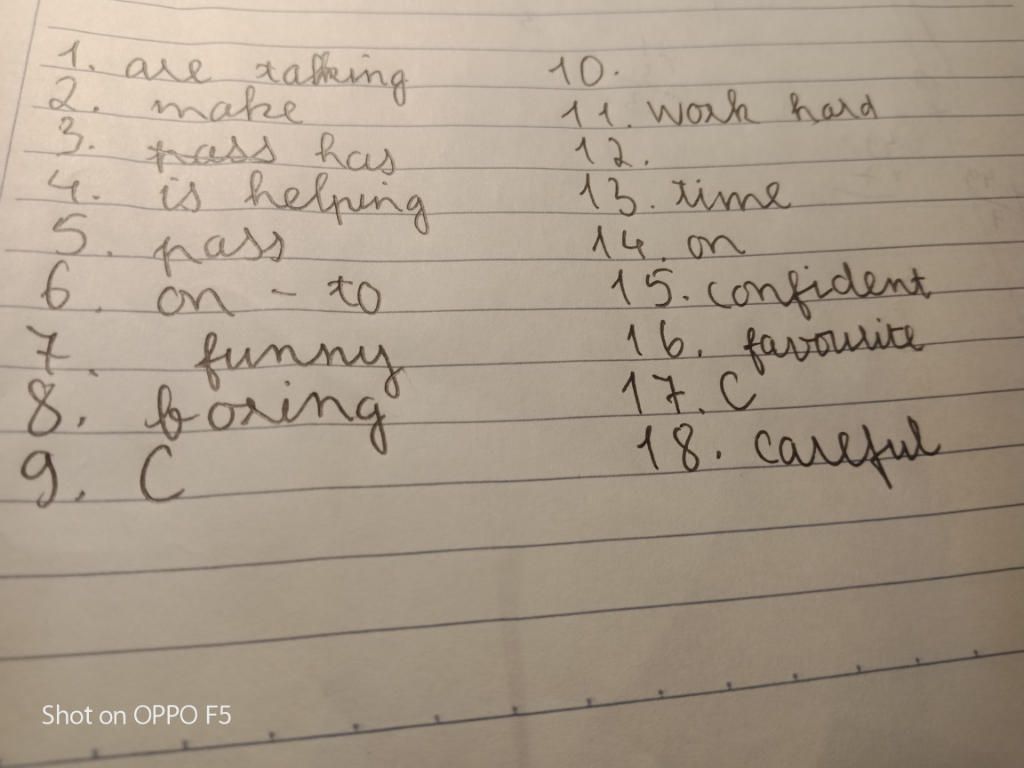 1. are talking
2. make
3. pass has
4. is helping
5. pass
6. on - to
7. funny
8. boring
9. C
10.
11. work hard
12.
13. time
14. on
15. confident
16. favourite
17. C
18. careful
Shot on OPPO F5